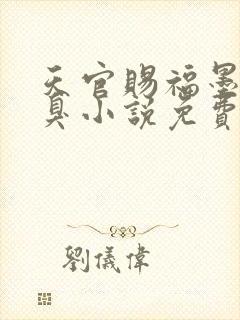 天官賜福墨
臭小說免費
劉儀偉